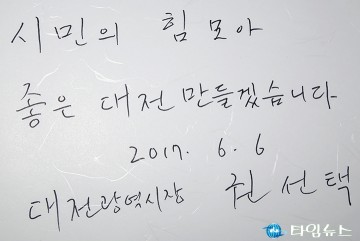 시민의 힘 모아
좋은 대전 만들겠습니다
2017. 6. 6
대전광역시장 권선택
타임뉴스